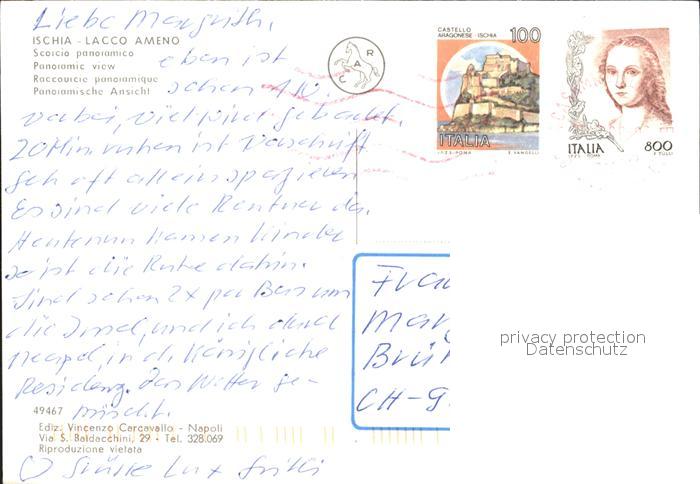 Liebe Margrith,
ISCHIA - LACCO AMENO
Scorcio panoramico
Panoramic view
Raccourcie panoramique
Panoramische Ansicht
eben ist
schon 1 W.
vorbei, viel wird gebadet.
20 Min ruhen ist Vorschrift
geh oft allein spazieren
Es sind viele Rentner da.
Heute kamen Kinder
so ist die Ruhe dahin.
Sind schon 2x per Bus um
die Insel, und ich durch
Neapel, in d. Königliche
Residenz. Das Wetter ge-
mischt.
49467
Ediz. Vincenzo Carcavallo - Napoli
Via S. Baldacchini, 29 - Tel. 328.069
Riproduzione vietata
Grüsse
CAR
CASTELLO
ARAGONESE ISCHIA
100
ITALIA
I.P.Z.S. ROMA
E. VANGELLI
ITALIA
800
I.P.Z.S. ROMA
F. TULLI
Frau
Mar
Brü
CH-9
privacy protection
Datenschutz